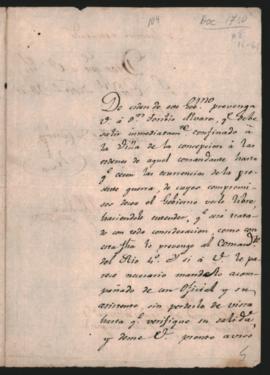 104
Doc 1730
De orden de este Gob.no prevenga
V. à D.n Benito Alvarez, q.e debe
salir inmediatam.te confinado à
la Villa de la concepcion à las
ordenes de aquel comandante hasta
q.e cesen las ocurrencias de la pre-
sente guerra, de cuyos compromisos
desea el Gobierno verlo libre,
haciendole entender, q.e será trata-
do con toda consideracion, como con
esta fha. lo prevengo al Comand.te
del Rio 4.o Y si à V. le pa-
rece necesario mandarlo acom-
pañado de un Oficial y su
asistente sin perderlo de vista
hasta q.e verifique su salida,
y deme V. pronto aviso
5